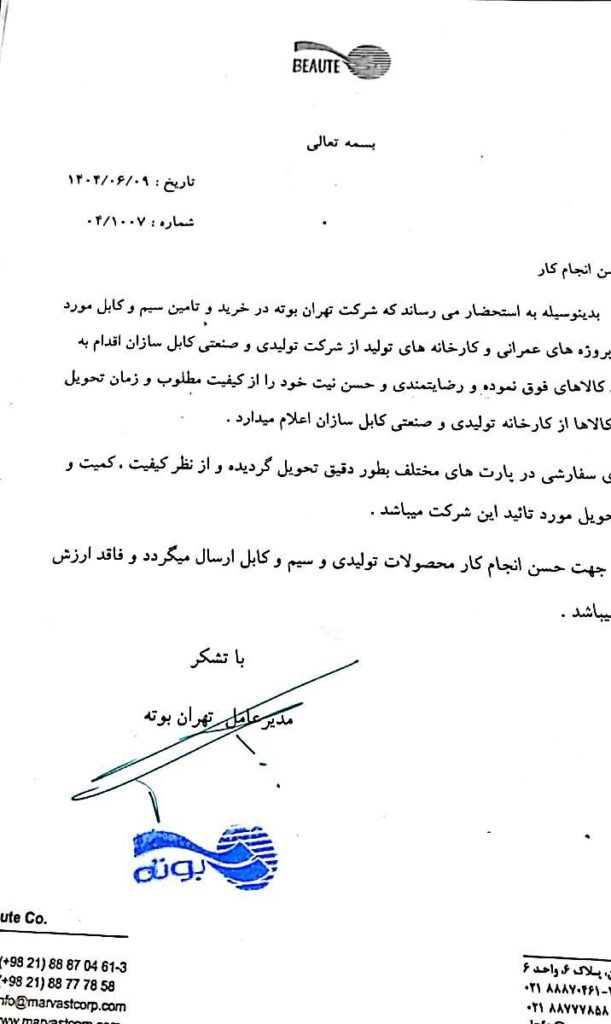 BEAUTE
بسمه تعالی
تاریخ : ۱۴۰۴/۰۶/۰۹
شماره : ۰۴/۱۰۰۷
انجام کار
بدینوسیله به استحضار می رساند که شرکت تهران بوته در خرید و تامین سیم و کابل مورد
پروژه های عمرانی و کارخانه های تولید از شرکت تولیدی و صنعتی کابل سازان اقدام به
کالاهای فوق نموده و رضایتمندی و حسن نیت خود را از کیفیت مطلوب و زمان تحویل
کالاها از کارخانه تولیدی و صنعتی کابل سازان اعلام میدارد .
سفارشی در پارت های مختلف بطور دقیق تحویل گردیده و از نظر کیفیت ، کمیت و
حویل مورد تائید این شرکت میباشد .
جهت حسن انجام کار محصولات تولیدی و سیم و کابل ارسال میگردد و فاقد ارزش
میباشد .
با تشکر
مدیرعامل تهران بوته
بوته
ute Co.
(+98 21) 88 87 04 61-3
(+98 21) 88 77 78 58
nfo@marvastcorp.com
www.marvastcorp.com
، پلاک ۶، واحد ۶
۰۲۱ ۸۸۸۷۰۴۶۱-
۰۲۱ ۸۸۷۷۷۸۵۸